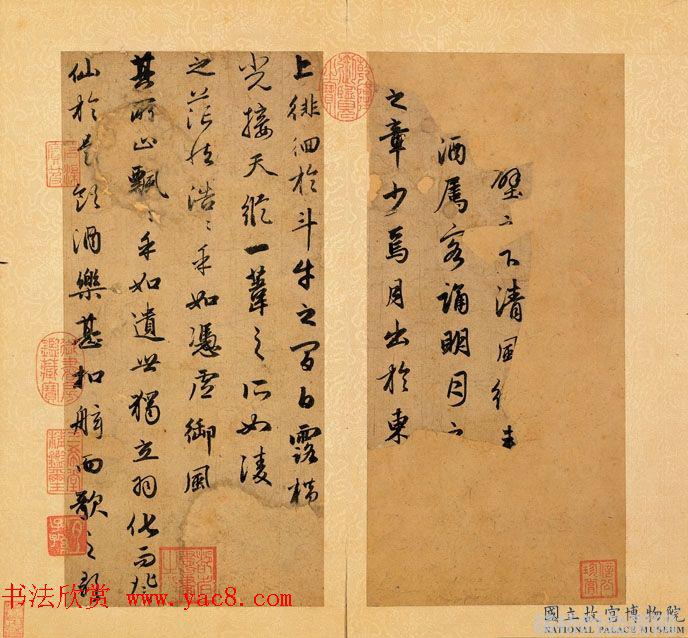 壁之下清風徐来
酒属客誦明月之
之章少焉月出於東
上徘徊於斗牛之間白露横
光接天縱一葦之所如凌
之茫然浩〻乎如憑虛御風
其所止飄〻乎如遺世獨立羽化而登
仙於是飲酒樂甚扣舷而歌之歌
乾隆御覽之寶
书法欣赏 www.yac8.com
國立故宮博物院
NATIONAL PALACE MUSEUM